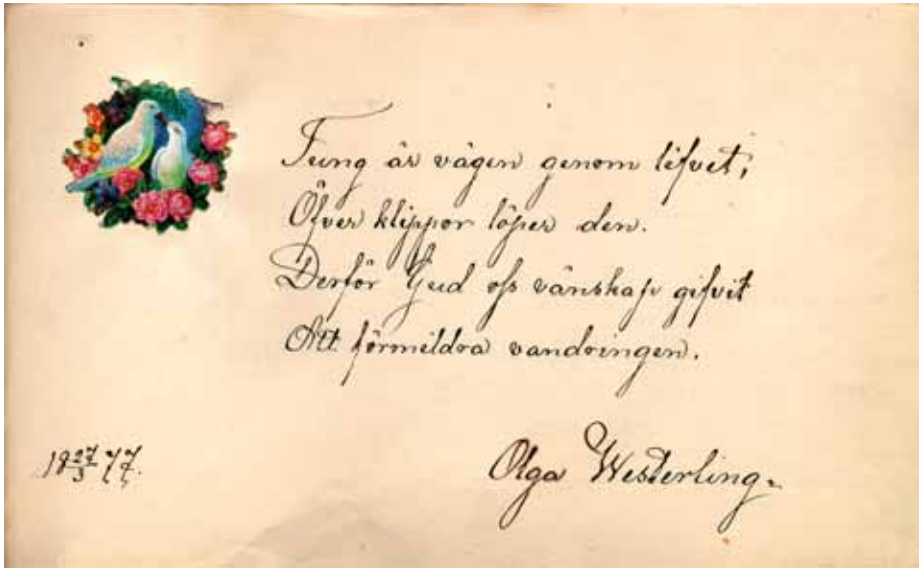 Tung är vägen genom lifvet,
Öfver klippor löper den.
Derför Gud oss vänskap gifvit
Att förmildra vandringen.
18 27/3 77.
Olga Westerling.